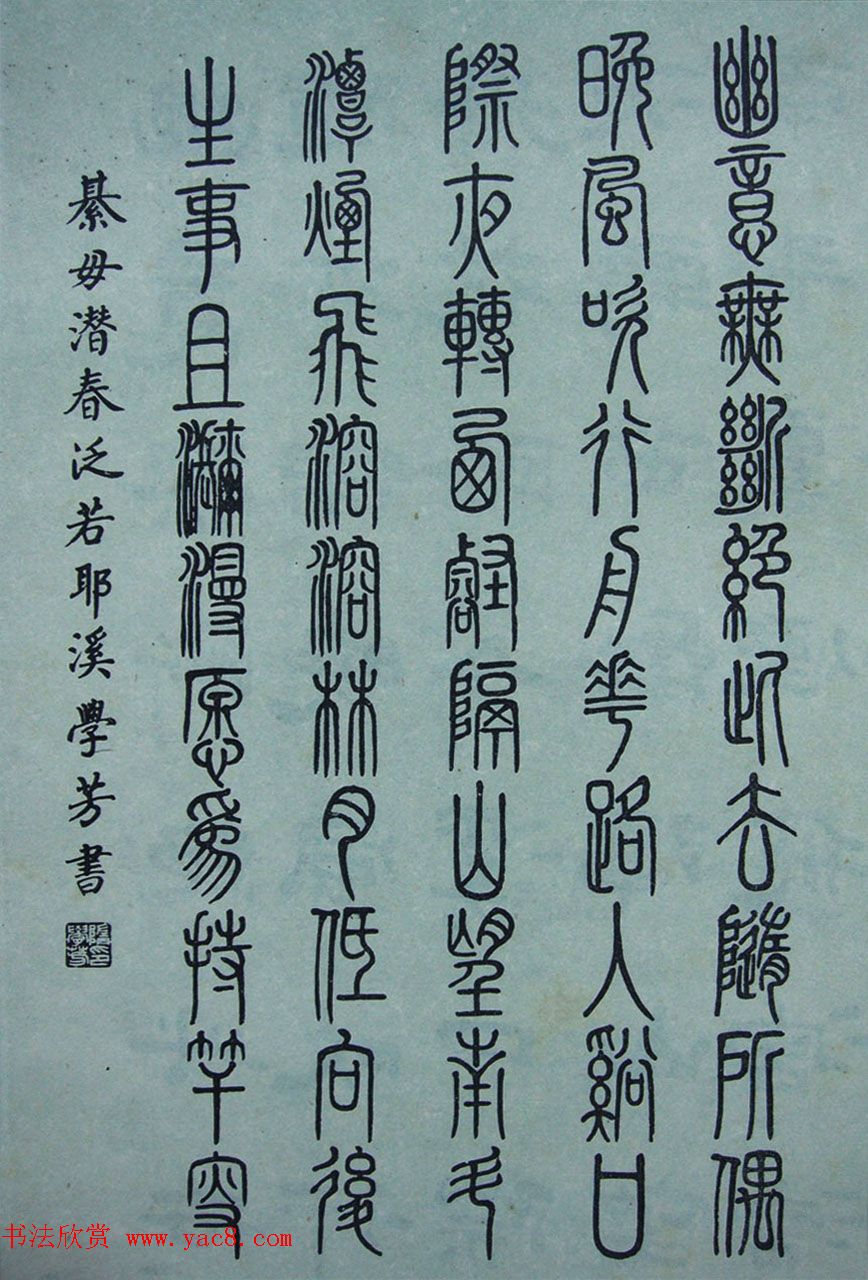 幽意無斷絕此去隨所偶
晚風吹行舟華路入谿口
際夜轉西壑隔山望南斗
潭煙飛溶溶林月低向後
生事且瀰漫愿為持竿叟
綦毋潜春泛若耶溪學芳書
书法欣赏 www.yac8.com